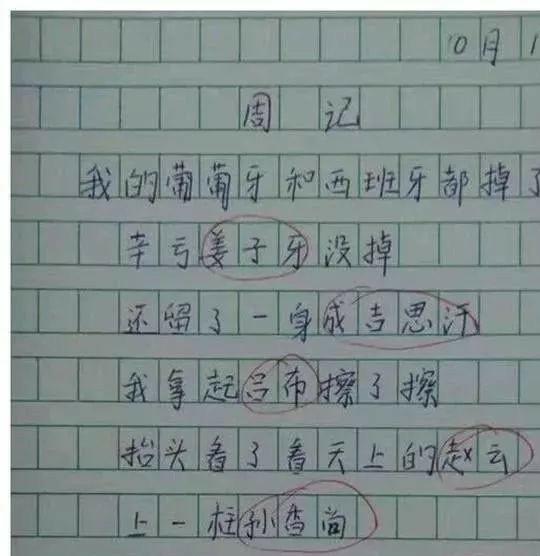 10月1
周记
我的葡萄牙和西班牙都掉了
辛亏姜子牙没掉
还留了一身成吉思汗
我拿起吕布擦了擦
抬头看了看天上的赵云
上一柱孙香尚